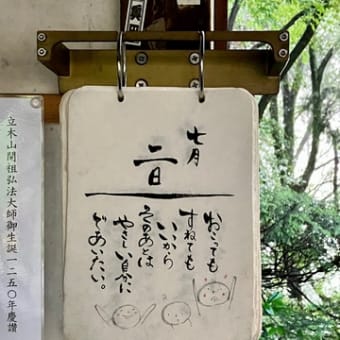 七月
二日
おこっても
すねても
いいから
そのあとは
やさしい自分に
であいたい。
立木山開祖弘法大師御生誕一二五〇年慶讃